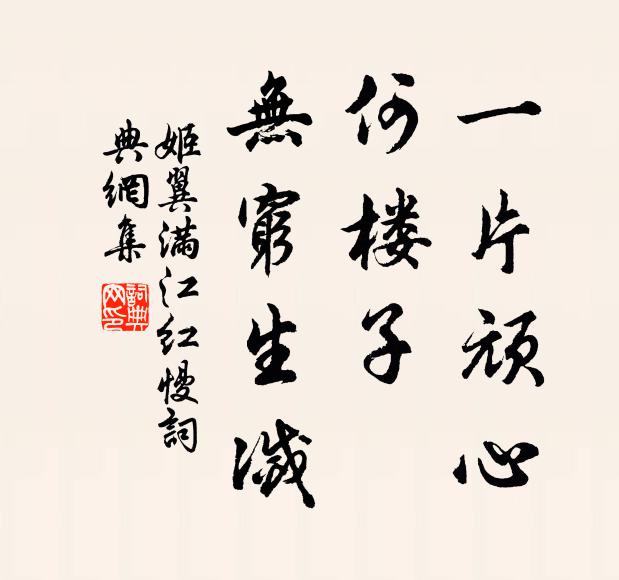 一片頑心
何楼子
無窮生滅
姬翼满江红慢詞
典網集
詞典網印